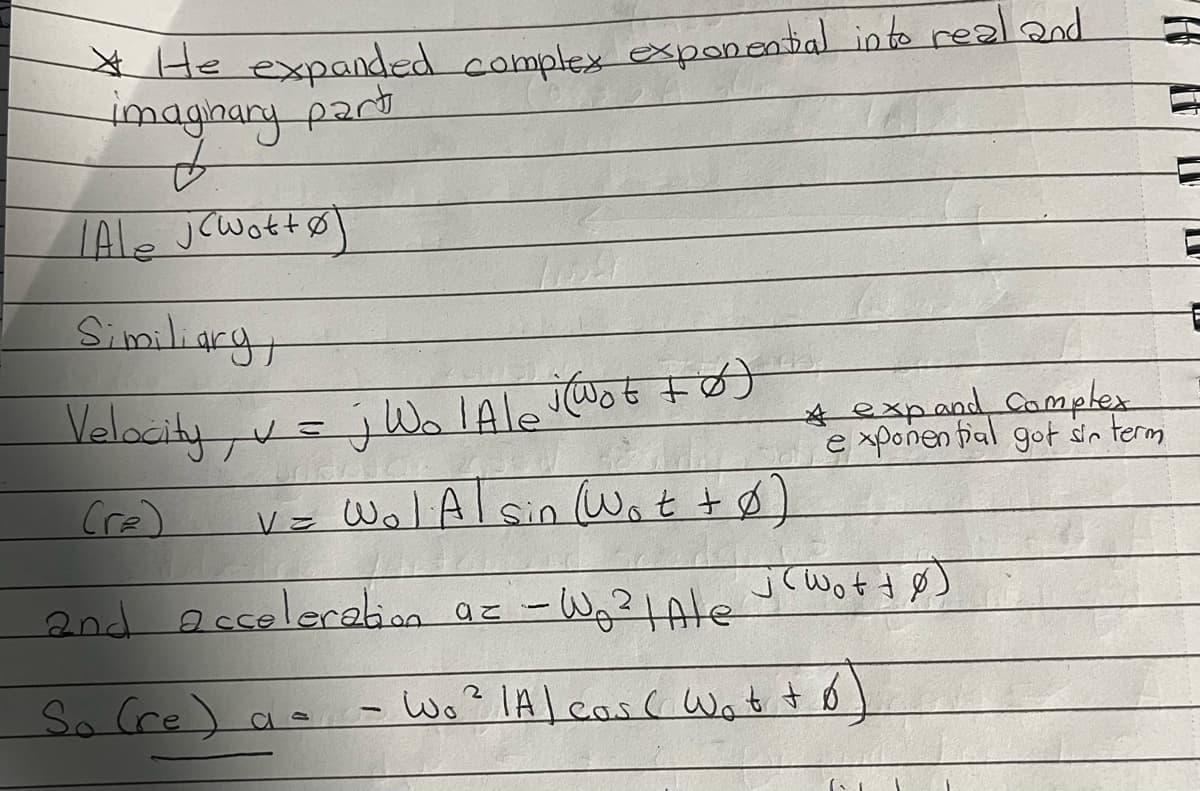 * He expanded complex exponential into real and
imaginary part
↓
|A|e j(ω₀t+ø)
Similiarg,
Velocity, v = j ω₀ |A|e j(ω₀t + ø)
* expand complex
exponential got sin term
(re) v = ω₀|A| sin (ω₀t + ø)
and acceleration a = - ω₀² |A|e j(ω₀t + ø)
So (re) a = - ω₀² |A| cos (ω₀t + ø)